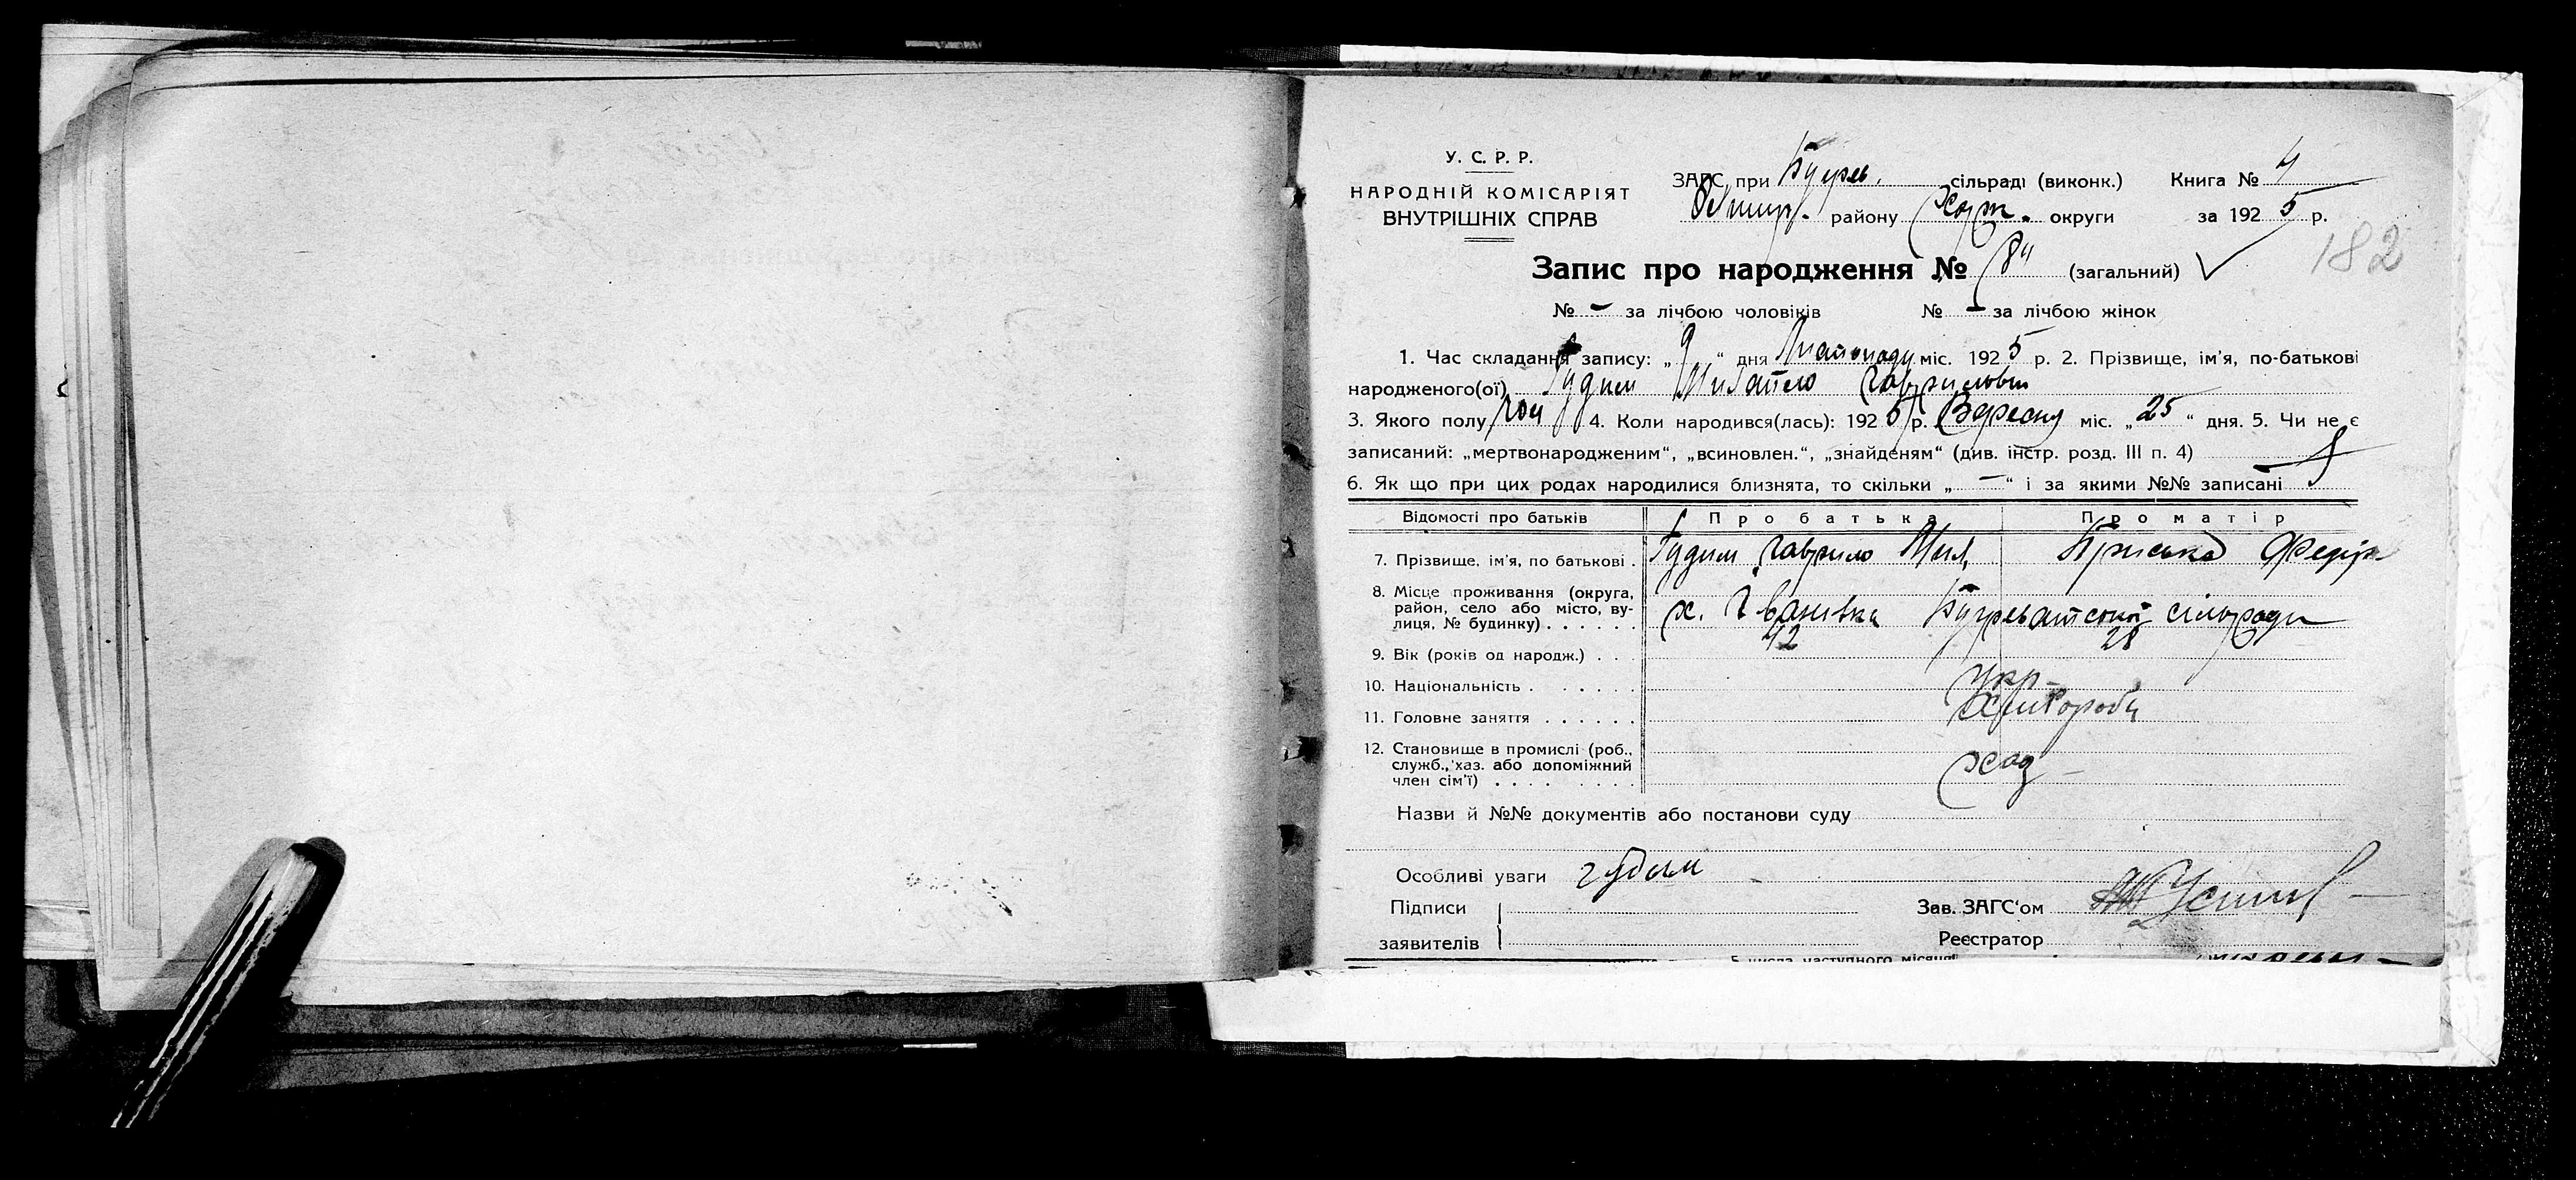 У. С. Р. Р.
НАРОДНІЙ КОМІСАРІЯТ
ВНУТРІШНІХ СПРАВ
ЗАГС при сільраді (виконк.) Книга № 4
району Харк. округи за 1925 р.
182
Запис про народження № (загальний)
№ - за лічбою чоловіків № - за лічбою жінок
1. Час складання запису: „9“ дня Листопаду міс. 1925 р. 2. Прізвище, ім'я, по-батькові
народженого(ої) Гудим Михайло Гаврилович
3. Якого полу чол 4. Коли народився(лась): 1925 р. Вересня міс. „25“ дня. 5. Чи не є
записаний: „мертвонародженим“, „всиновлен.“, „знайденям“ (див. інстр. розд. III п. 4)
6. Як що при цих родах народилися близнята, то скільки „-“ і за якими №№ записані
Відомості про батьків Про батька Про матір
7. Прізвище, ім'я, по батькові . Гудим Гаврило Федір
8. Місце проживання (округа,
район, село або місто, ву-
лиця, № будинку) . . . . . . х. Іванівка сільради
9. Вік (років од народж.) . . . 42 28
10. Національність . . . . . . Укр
11. Головне заняття . . . . . . Хліборобц
12. Становище в промислі (роб.,
служб., хаз. або допоміжний
член сім'ї) . . . . . . . .
Назви й №№ документів або постанови суду
Особливі уваги гудим
Підписи
заявителів
Зав. ЗАГС'ом
Реєстратор
5 числа наступного місяця